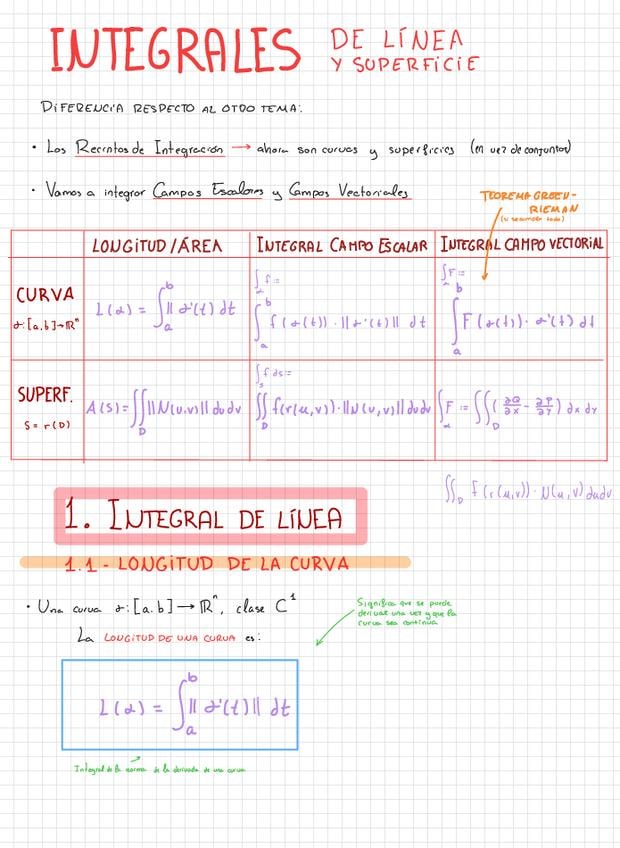 INTEGRALES DE LÍNEA
Y SUPERFICIE
DIFERENCIA RESPECTO AL OTRO TEMA:
• Los Recintos de Integración → ahora son curvas y superficies (en vez de conjuntos)
• Vamos a integrar Campos Escalares y Campos Vectoriales
TEOREMA GREEN-
RIEMAN
LONGITUD/ÁREA INTEGRAL CAMPO ESCALAR INTEGRAL CAMPO VECTORIAL
CURVA
α:[a,b]→ℝⁿ
L(α) = ∫_a^b ||α'(t)|| dt
∫_α f :=
∫_a^b f(α(t))·||α'(t)|| dt
∫_α F :=
∫_a^b F(α(t))·α'(t) dt
SUPERF.
S = r(D)
A(S) = ∬_D ||N(u,v)|| du dv
∫_s f ds :=
∬_D f(r(u,v))·||N(u,v)|| du dv
∫_α F := ∬_D (∂Q/∂x - ∂P/∂y) dx dy
∬_D F(r(u,v))·N(u,v) du dv
1. INTEGRAL DE LÍNEA
1.1 - LONGITUD DE LA CURVA
• Una curva α:[a,b]→ℝⁿ, clase C¹
Significa que se puede
derivar una vez y que la
curva sea continua
La LONGITUD DE UNA CURVA es:
L(α) = ∫_a^b ||α'(t)|| dt
Integral de la norma de la derivada de una curva